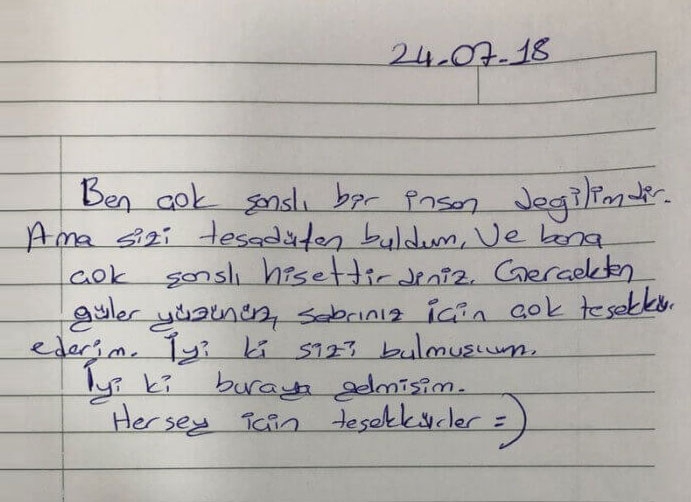 24-07-18
Ben çok şanslı bir insan değilimdir.
Ama sizi tesadüfen buldum, Ve bana
çok şanslı hisettirdiniz. Gerçekten
güler yüzünüz, sabrınız için çok teşekkür
ederim. İyi ki sizi bulmuşum.
İyi ki buraya gelmişim.
Herşey için teşekkürler =)